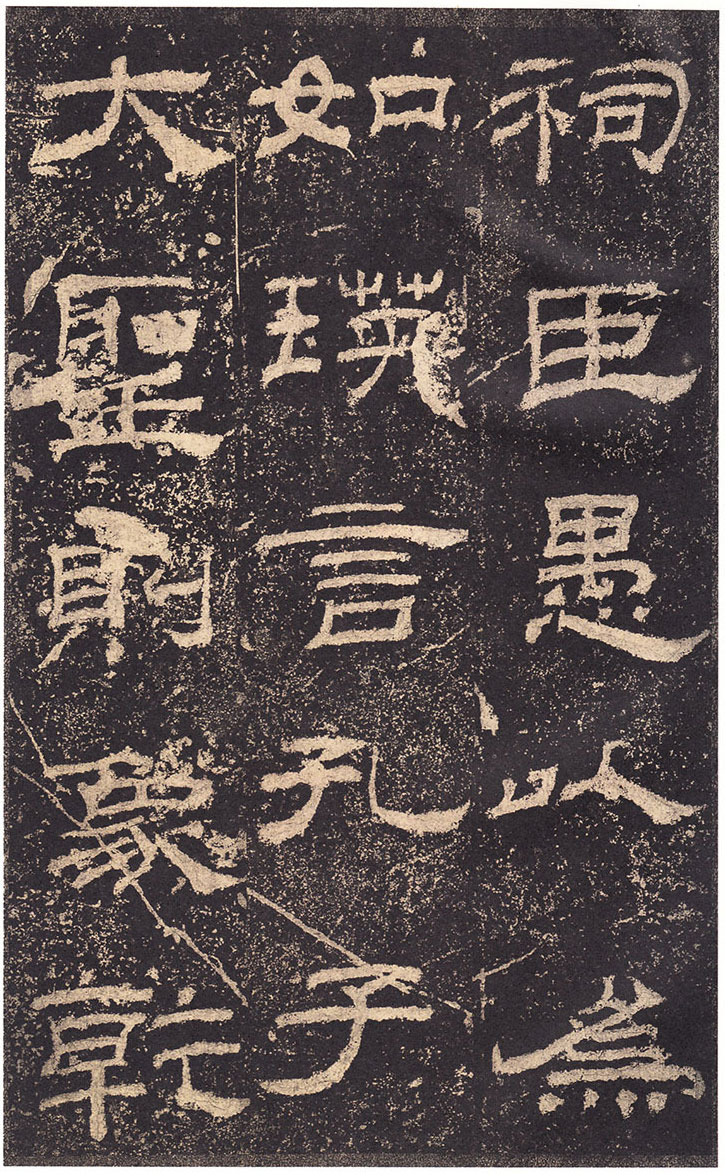 祠臣愚以爲
如瑛言孔子
大聖則象乾